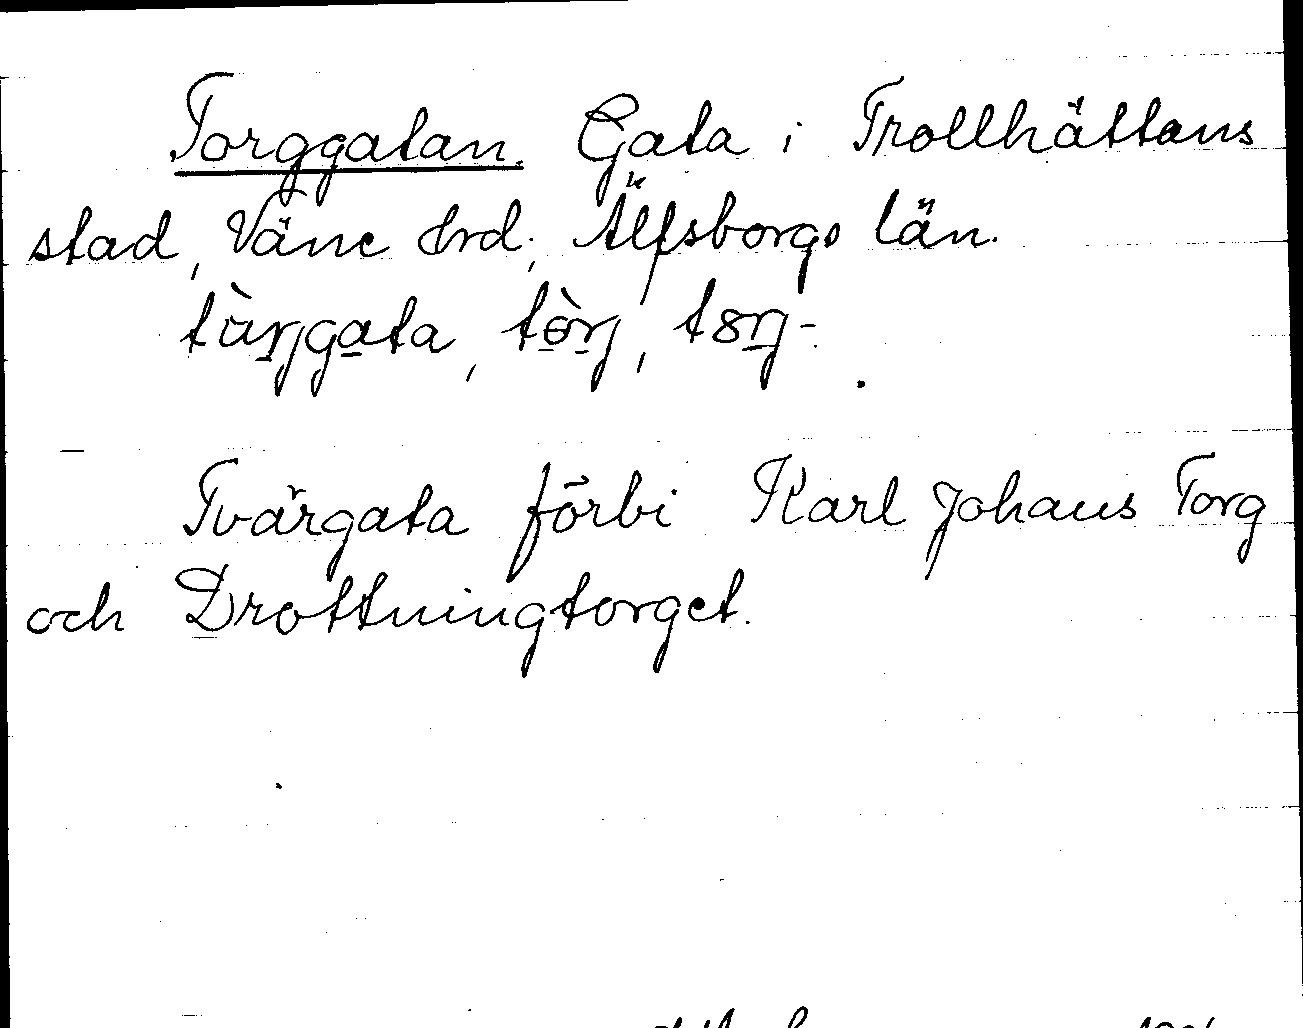 Torggatan. Gata i Trollhättans
stad, Väne hrd, Älfsborgs län.
Tvärgata förbi Karl Johans Torg
och Drottningtorget.